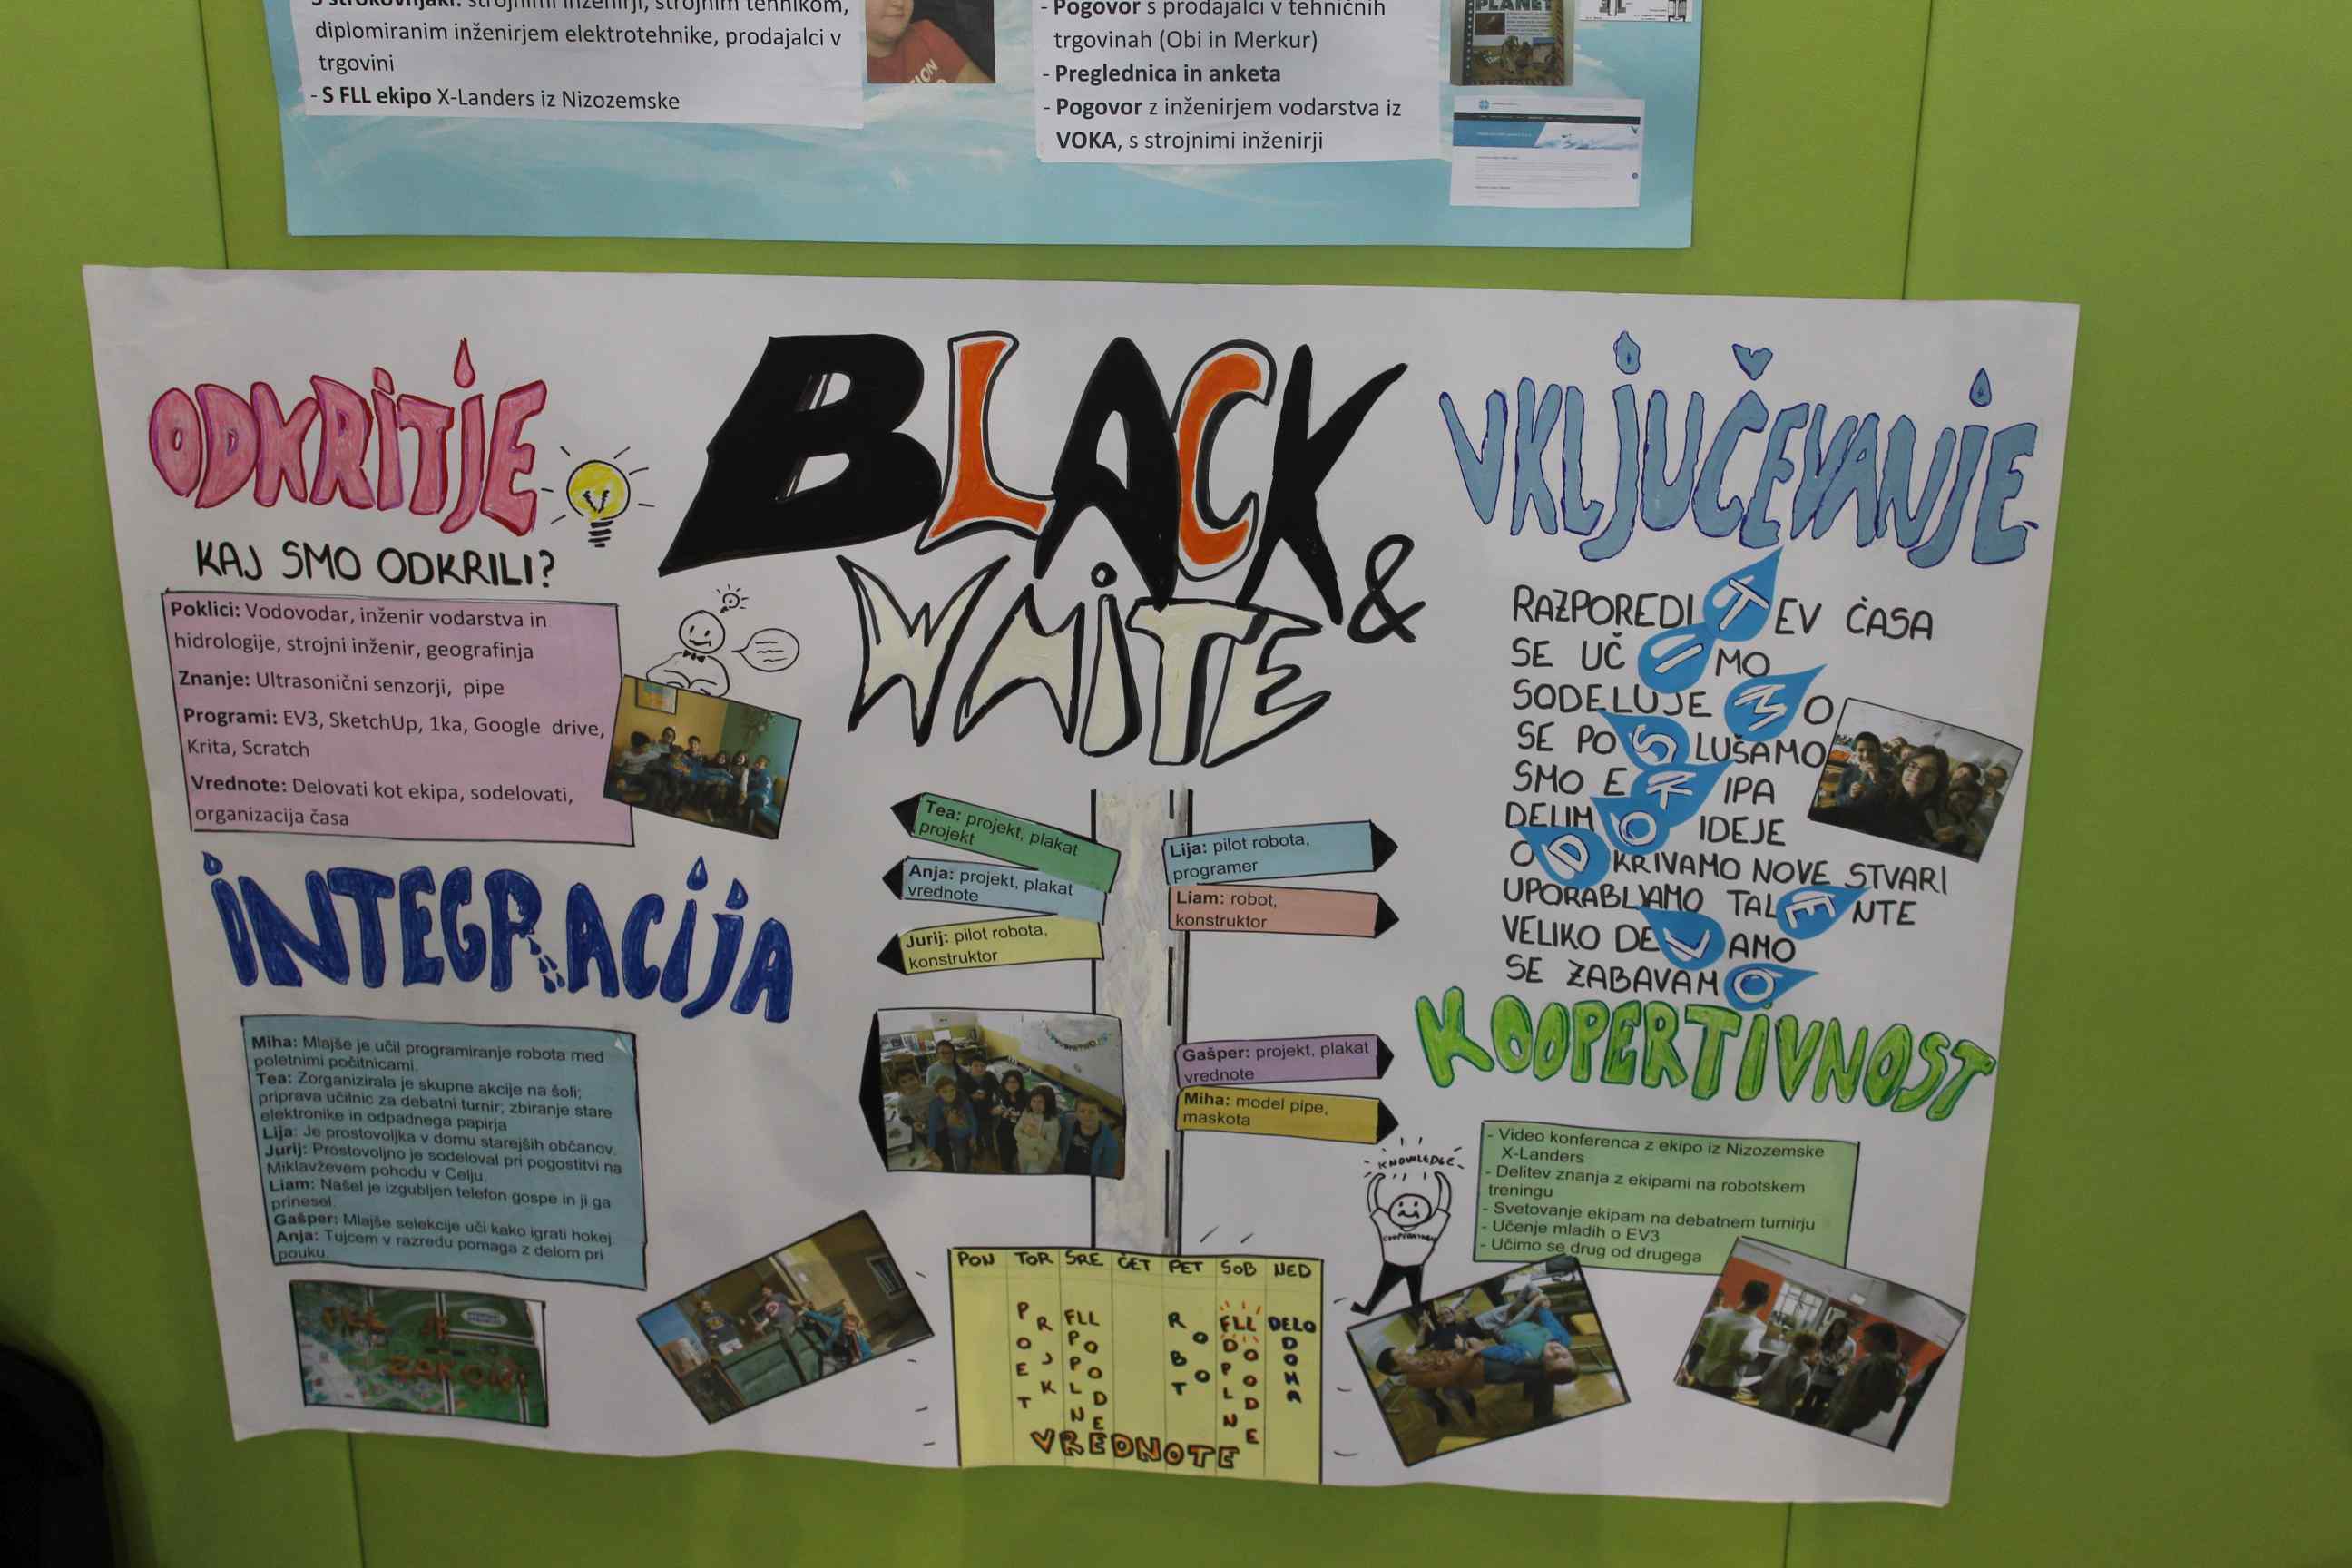 S strokovnjaki: strojnimi inženirji, strojnim tehnikom,
diplomiranim inženirjem elektrotehnike, prodajalci v
trgovini
- S FLL ekipo X-Landers iz Nizozemske
- Pogovor s prodajalci v tehničnih
trgovinah (Obi in Merkur)
- Preglednica in anketa
- Pogovor z inženirjem vodarstva iz
VOKA, s strojnimi inženirji
PLANET
ODKRITJE
KAJ SMO ODKRILI?
Poklici: Vodovodar, inženir vodarstva in
hidrologije, strojni inženir, geografinja
Znanje: Ultrasonični senzorji, pipe
Programi: EV3, SketchUp, 1ka, Google drive,
Krita, Scratch
Vrednote: Delovati kot ekipa, sodelovati,
organizacija časa
BLACK
&
WHITE
VKLJUČEVANJE
RAZPOREDITEV ČASA
SE UČIMO
SODELUJEMO
SE POSLUŠAMO
SMO EKIPA
DELIMO IDEJE
ODKRIVAMO NOVE STVARI
UPORABLJAMO TALENTE
VELIKO DELAMO
SE ZABAVAMO
INTEGRACIJA
Miha: Mlajše je učil programiranje robota med
poletnimi počitnicami.
Tea: Zorganizirala je skupne akcije na šoli;
priprava učilnic za debatni turnir, zbiranje stare
elektronike in odpadnega papirja
Lija: Je prostovoljka v domu starejših občanov.
Jurij: Prostovoljno je sodeloval pri pogostitvi na
Miklavževem pohodu v Celju.
Liam: Našel je izgubljen telefon gospe in ji ga
prinesel.
Gašper: Mlajše selekcije uči kako igrati hokej.
Anja: Tujcem v razredu pomaga z delom pri
pouku.
FLL JE
ZAKON!
Tea: projekt, plakat
projekt
Anja: projekt, plakat
vrednote
Jurij: pilot robota,
konstruktor
Lija: pilot robota,
programer
Liam: robot,
konstruktor
Gašper: projekt, plakat
vrednote
Miha: model pipe,
maskota
PON TOR SRE ČET PET SOB NED
PROJEKT
FLL
POPOLDNE
ROBOT
FLL
DOPOLDNE
DELO
DOMA
VREDNOTE
KOOPERTIVNOST
KNOWLEDGE
- Video konferenca z ekipo iz Nizozemske
X-Landers
- Delitev znanja z ekipami na robotskem
treningu
- Svetovanje ekipam na debatnem turnirju
- Učenje mladih o EV3
- Učimo se drug od drugega